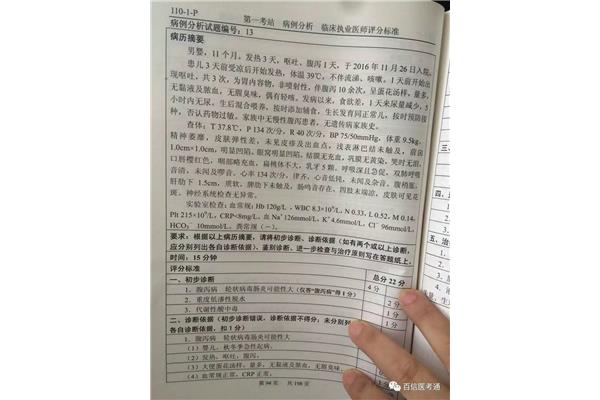 110-1-P
第一考站 病例分析 临床执业医师评分标准
病例分析试题编号：13
病历摘要
男婴，11个月。发热3天，呕吐、腹泻1天，于2016年11月26日入院。
患儿3天前受凉后开始发热，体温39℃，不伴流涕、咳嗽。1天前开始出
现呕吐，共3次，为胃内容物，非喷射性，伴腹泻10余次，呈蛋花汤样，量多，
无黏液及脓血，无腥臭味，偶有轻咳。发病以来，食欲差，1天来尿量减少，5
小时内无尿。生后混合喂养，按时添加辅食，生长发育同正常儿，按时预防接
种，否认药物过敏，家族中无慢性腹泻患者，无遗传病家族史。
查体：T 37.8℃，P 134次/分，R 40次/分，BP 75/50mmHg，体重9.5kg，
精神萎靡，皮肤弹性差，未见皮疹及出血点，浅表淋巴结未触及，前囟
1.0cm×1.0cm，明显凹陷，眼窝明显凹陷，结膜无充血，巩膜无黄染，哭时无泪，
口唇樱红色，咽部略充血，扁桃体不大，乳牙5颗，呼吸深且急促，双肺呼吸
音清，未闻及啰音。心率134次/分，律齐，心音低钝，未闻及杂音。腹稍胀，
肝肋下1.5cm，质软，脾肋下未触及，肠鸣音存在，四肢末端凉，皮肤可见花
斑。神经系统检查无异常。
实验室检查：血常规：Hb 120g/L，WBC 8.3×10⁹/L，N 0.33，L 0.52，M 0.14，
Plt 215×10⁹/L，CRP<8mg/L，血Na⁺126mmol/L，K⁺4.6mmol/L，Cl⁻ 96mmol/L，
HCO₃⁻ 10mmol/L，粪常规（－）。
要求：根据以上病历摘要，请将初步诊断、诊断依据（如有两个或以上诊断，
应分别列出各自诊断依据）、鉴别诊断、进一步检查与治疗原则写在答题纸上。
时间：15分钟
评分标准 总分22分
一、初步诊断 4分
1．腹泻病 轮状病毒肠炎可能性大（仅答“腹泻病”得1分） 2分
2．重度低渗性脱水 1分
3．代谢性酸中毒 1分
二、诊断依据（初步诊断错误，诊断依据不得分；未分别列
各自诊断依据，扣1分）
1．腹泻病 轮状病毒肠炎可能性大
（1）婴儿，秋冬季急性起病。
（2）发热、呕吐、腹泻。
（3）大便蛋花汤样，量多，无黏液及脓血，无腥臭味。
（4）血常规正常，CRP正常。
第94页 共198页
百信医考通